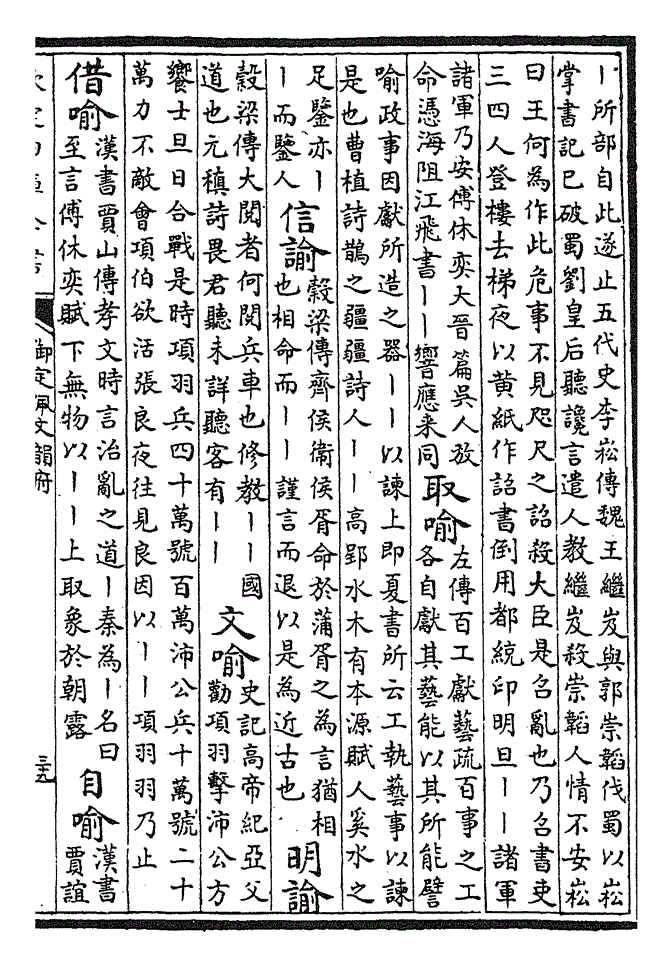 丨所部自此遂止五代史李崧傳魏王繼岌與郭崇韜伐蜀以崧
掌書記已破蜀劉皇后聽讒言遣人教繼岌殺崇韜人情不安崧
曰王何為作此危事不見咫尺之詔殺大臣是召亂也乃召書吏
三四人登樓去梯夜以黄紙作詔書倒用都統印明旦丨丨諸軍
諸軍乃安傅休奕大晉篇吳人放
命憑海阻江飛書丨丨響應来同
取喻
左傳百工獻藝疏百事之工
各自獻其藝能以其所能譬
喻政事因獻所造之器丨丨以諫上即夏書所云工執藝事以諫
是也曹植詩鵲之疆疆詩人丨丨高郢水木有本源賦人奚水之
足鑒亦丨
丨而鑒人
信諭
榖梁傳齊侯衛侯胥命於蒲胥之為言猶相
也相命而丨丨謹言而退以是為近古也
明諭
榖梁傳大閱者何閱兵車也修教丨丨國
道也元稹詩畏君聽未詳聽客有丨丨
文喻
史記高帝紀亞父
勸項羽擊沛公方
饗士旦日合戰是時項羽兵四十萬號百萬沛公兵十萬號二十
萬力不敵會項伯欲活張良夜往見良因以丨丨項羽羽乃止
借喻
漢書賈山傳孝文時言治亂之道丨秦為丨名曰
至言傅休奕賦下無物以丨丨上取象於朝露
自喻
漢書
賈誼
欽定四庫全書
御定佩文韻府